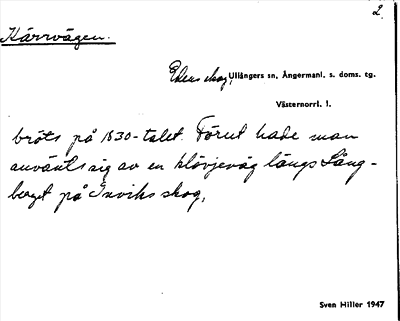 2.
Kärrvägen.
Edens skog, Ullångers sn, Ångermanl. s. doms. tg.
Västernorrl. l.
bröts på 1830-talet. Förut hade man
använts sig av en klövjeväg längs Lång-
berget på Inviks skog.
Sven Hiller 1947